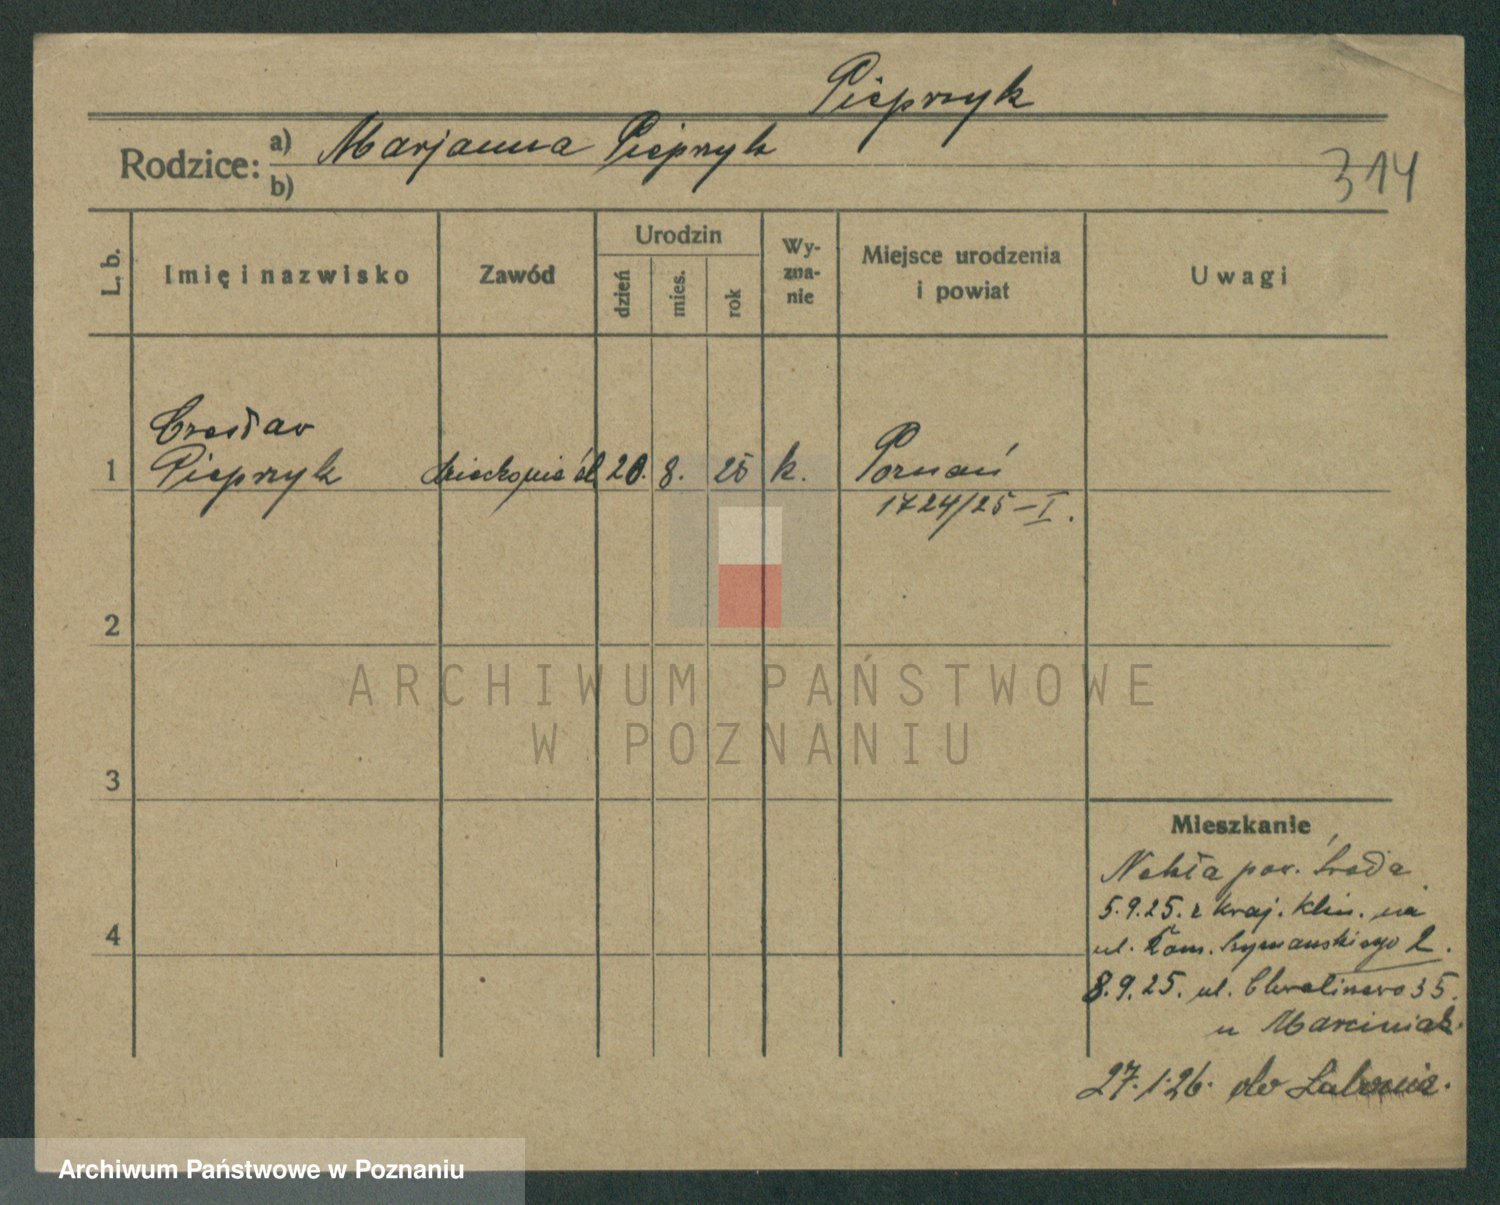 Pieprzyk
Rodzice: a) Marjanna Pieprzyk
b)
314
L. b.
Imię i nazwisko
Zawód
Urodzin
dzień
mies.
rok
Wy-
zna-
nie
Miejsce urodzenia
i powiat
Uwagi
Czesław
1 Pieprzyk 20. 8. 25 k. Poznań
1724/25-I.
2
3
4
Mieszkanie
Nekla pow. Środa
5.9.25. z kraj. klin. na
ul. Tom. Szymańskiego 2.
8.9.25. ul. Chwaliszewo 35.
u Marciniak.
27.1.26. do
ARCHIWUM PAŃSTWOWE
W POZNANIU
Archiwum Państwowe w Poznaniu